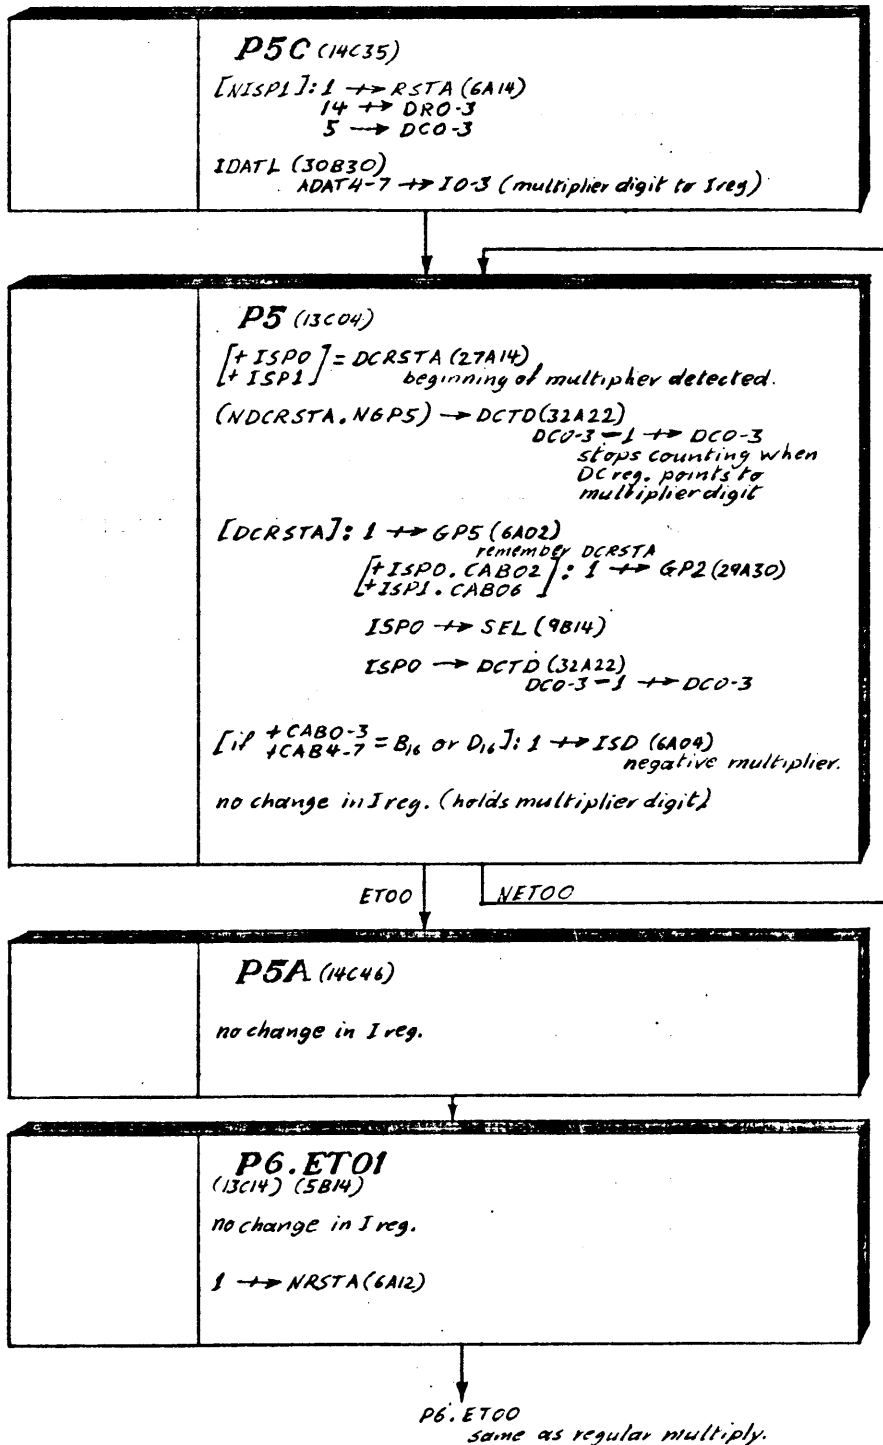 P5C (14C35)
[NISP1]: 1 +→ RSTA (6A14)
14 +→ DR0-3
5 → DC0-3
IDATL (30B30)
ADAT4-7 +→ I0-3 (multiplier digit to Ireg)
P5 (13C04)
[+ISP0
+ISP1] = DCRSTA (27A14)
beginning of multiplier detected.
(NDCRSTA.NGP5) → DCTD (32A22)
DC0-3 -1 +→ DC0-3
stops counting when
DC reg. points to
multiplier digit
[DCRSTA]: 1 +→ GP5 (6A02)
remember DCRSTA
[+ISP0.CAB02
+ISP1.CAB06]: 1 +→ GP2 (29A30)
ISP0 +→ SEL (9B14)
ISP0 → DCTD (32A22)
DC0-3 -1 +→ DC0-3
[if +CAB0-3
+CAB4-7 = B16 or D16]: 1 +→ ISD (6A04)
negative multiplier.
no change in Ireg. (holds multiplier digit)
ET00 NET00
P5A (14C46)
no change in I reg.
P6.ET01
(13C14) (5B14)
no change in I reg.
1 +→ NRSTA (6A12)
P6.ET00
same as regular multiply.